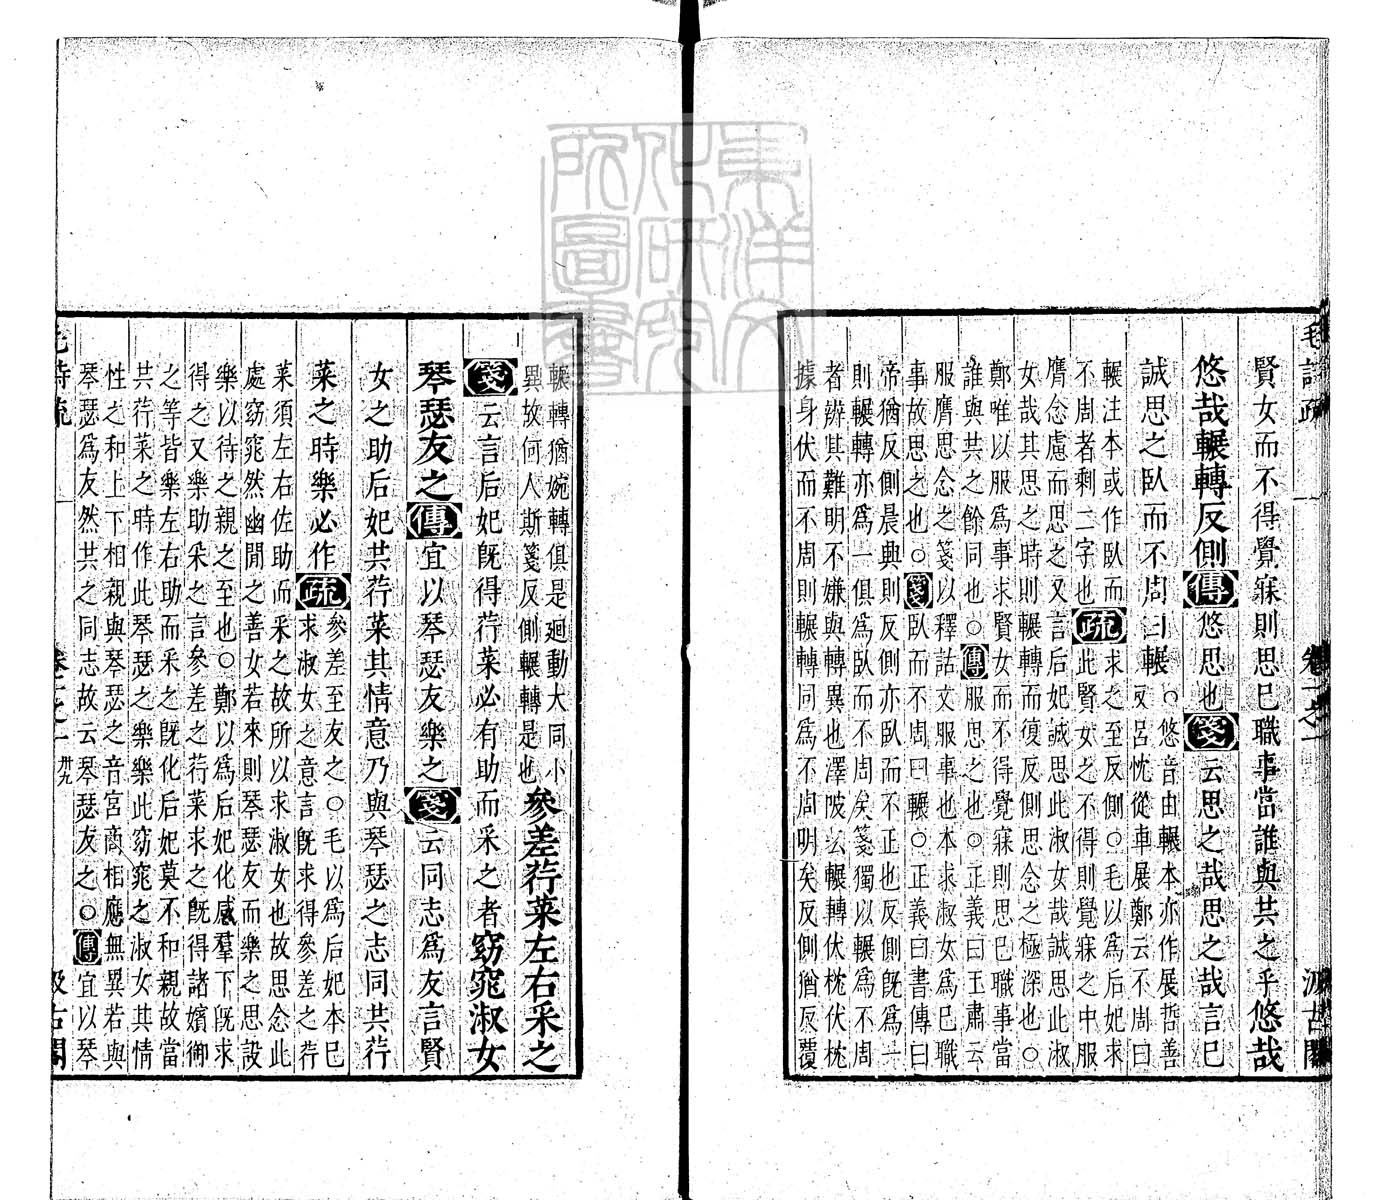 毛詩疏 卷一之一 汲古閣
賢女而不得覺寐則思已職事當誰與共之乎悠哉
悠哉輾轉反側傳悠思也箋云思之哉思之哉言已
誠思之臥而不周曰輾○悠音由輾本亦作展哲善
反呂忱從車展鄭云不周曰
輾注本或作臥而
不周者剩二字也疏求之至反側○毛以為后妃求
此賢女之不得則覺寐之中服
膺念慮而思之又言后妃誠思此淑女哉誠思此淑
女哉其思之時則輾轉而復反側思念之極深也○
鄭唯以服為事求賢女而不得覺寐則思已職事當
誰與共之餘同也○傳服思之也○正義曰王肅云
服膺思念之箋以釋詁文服事也本求淑女為已職
事故思之也○箋臥而不周曰輾○正義曰書傳曰
帝猶反側晨興則反側亦臥而不正也反側旣為一
則輾轉亦為一俱為臥而不周矣箋獨以輾為不周
者辨其難明不嫌與轉異也澤陂云輾轉伏枕伏枕
據身伏而不周則輾轉同為不周明矣反側猶反覆
輾轉猶婉轉俱是迴動大同小
異故何人斯箋反側輾轉是也參差荇菜左右采之
箋云言后妃旣得荇菜必有助而采之者窈窕淑女
琴瑟友之傳宜以琴瑟友樂之箋云同志為友言賢
女之助后妃共荇菜其情意乃與琴瑟之志同共荇
菜之時樂必作疏參差至友之○毛以為后妃本已
求淑女之意言旣求得參差之荇
菜須左右佐助而采之故所以求淑女也故思念此
處窈窕然幽閒之善女若來則琴瑟友而樂之思設
樂以待之親之至也○鄭以為后妃化感羣下旣求
得之又樂助采之言參差之荇菜求之旣得諸嬪御
之等皆樂左右助而采之旣化后妃莫不和親故當
共荇菜之時作此琴瑟之樂樂此窈窕之淑女其情
性之和上下相親與琴瑟之音宮商相應無異若與
琴瑟為友然共之同志故云琴瑟友之○傳宜以琴
毛詩疏 卷一之一 卅九 汲古閣